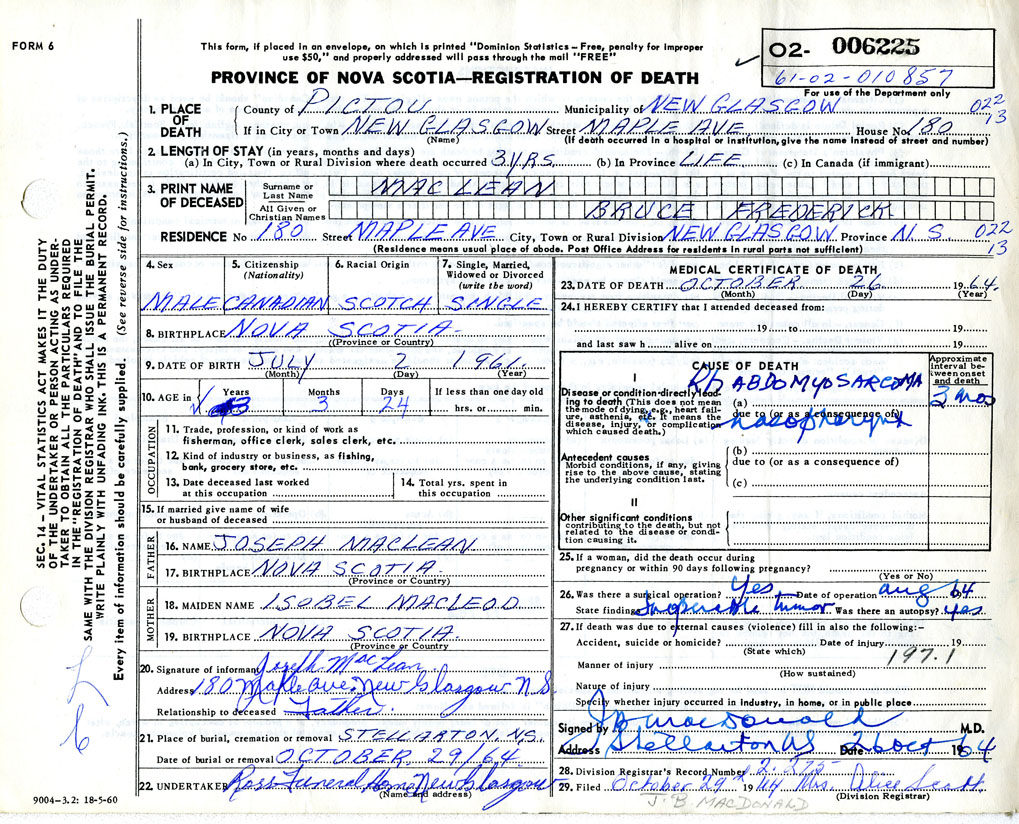 FORM 6
This form, if placed in an envelope, on which is printed "Dominion Statistics – Free, penalty for improper
use $50," and properly addressed will pass through the mail "FREE"
PROVINCE OF NOVA SCOTIA—REGISTRATION OF DEATH
O2- 006225
61-02-010857
For use of the Department only
1. PLACE OF DEATH
County of PICTOU Municipality of NEW GLASGOW 022
If in City or Town NEW GLASGOW Street MAPLE AVE House No. 180 13
(Name) (If death occurred in a hospital or institution, give the name instead of street and number)
2. LENGTH OF STAY (in years, months and days)
(a) In City, Town or Rural Division where death occurred 3 YRS. (b) In Province LIFE (c) In Canada (if immigrant)
3. PRINT NAME OF DECEASED
Surname or Last Name MACLEAN
All Given or Christian Names BRUCE FREDERICK
RESIDENCE No. 180 Street MAPLE AVE City, Town or Rural Division NEW GLASGOW Province N.S. 022
13
(Residence means usual place of abode. Post Office Address for residents in rural parts not sufficient)
4. Sex 5. Citizenship (Nationality) 6. Racial Origin 7. Single, Married, Widowed or Divorced (write the word)
MALE CANADIAN SCOTCH SINGLE
8. BIRTHPLACE NOVA SCOTIA
(Province or Country)
9. DATE OF BIRTH JULY 2 1961
(Month) (Day) (Year)
10. AGE in Years Months Days If less than one day old
3 3 24 hrs. or min.
OCCUPATION
11. Trade, profession, or kind of work as
fisherman, office clerk, sales clerk, etc.
12. Kind of industry or business, as fishing,
bank, grocery store, etc.
13. Date deceased last worked
at this occupation
14. Total yrs. spent in
this occupation
15. If married give name of wife
or husband of deceased
FATHER
16. NAME JOSEPH MACLEAN
17. BIRTHPLACE NOVA SCOTIA
(Province or Country)
MOTHER
18. MAIDEN NAME ISOBEL MACLEOD
19. BIRTHPLACE NOVA SCOTIA.
(Province or Country)
20. Signature of informant Joseph MacLean
Address 180 Maple Ave. New Glasgow N.S
Relationship to deceased Father.
21. Place of burial, cremation or removal STELLARTON, N.S.
Date of burial or removal OCTOBER. 29/64.
22. UNDERTAKER Ross Funeral Home New Glasgow
(Name and address)
9004–3.2: 18-5-60
MEDICAL CERTIFICATE OF DEATH
23. DATE OF DEATH OCTOBER 26 1964.
(Month) (Day) (Year)
24. I HEREBY CERTIFY that I attended deceased from:
19 to 19
and last saw h alive on 19
CAUSE OF DEATH
Approximate interval between onset and death
I
Disease or condition directly leading to death (This does not mean the mode of dying, e.g., heart failure, asthenia, etc. It means the disease, injury, or complication which caused death.)
(a) RhABDOMYOSARCOMA 3 mos
due to (or as a consequence of)
nasopharynx
Antecedent causes
Morbid conditions, if any, giving rise to the above cause, stating the underlying condition last.
(b)
due to (or as a consequence of)
(c)
II
Other significant conditions
contributing to the death, but not related to the disease or condition causing it.
25. If a woman, did the death occur during
pregnancy or within 90 days following pregnancy?
(Yes or No)
26. Was there a surgical operation? Yes Date of operation Aug 64
State findings Inoperable tumor Was there an autopsy? yes
27. If death was due to external causes (violence) fill in also the following:–
Accident, suicide or homicide? Date of injury 19
(State which) 197.1
Manner of injury
(How sustained)
Nature of injury
Specify whether injury occurred in industry, in home, or in public place
Signed by J B MacDonald M.D.
Address Stellarton NS Date 26 Oct 1964
28. Division Registrar's Record Number 2.275
29. Filed October 29th 1964 Mrs. Alice
(Division Registrar)
J. B. MACDONALD
SEC. 14 – VITAL STATISTICS ACT MAKES IT THE DUTY
OF THE UNDERTAKER OR PERSON ACTING AS UNDER-
TAKER TO OBTAIN ALL THE PARTICULARS REQUIRED
IN THE "REGISTRATION OF DEATH" AND TO FILE THE
SAME WITH THE DIVISION REGISTRAR WHO SHALL ISSUE THE BURIAL PERMIT.
WRITE PLAINLY WITH UNFADING INK. THIS IS A PERMANENT RECORD.
Every item of information should be carefully supplied. (See reverse side for instructions.)